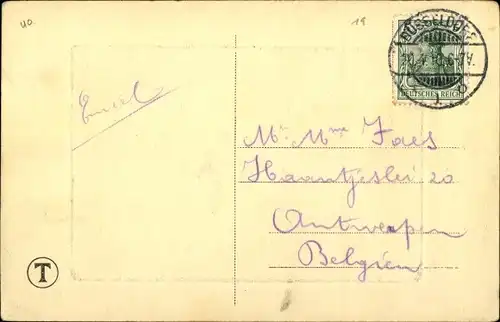 40.
19
DÜSSELDORF
DEUTSCHES REICH
Emiel
Mr. Mme Faes
Haantjeslei 20
Antwerpen
Belgien
T